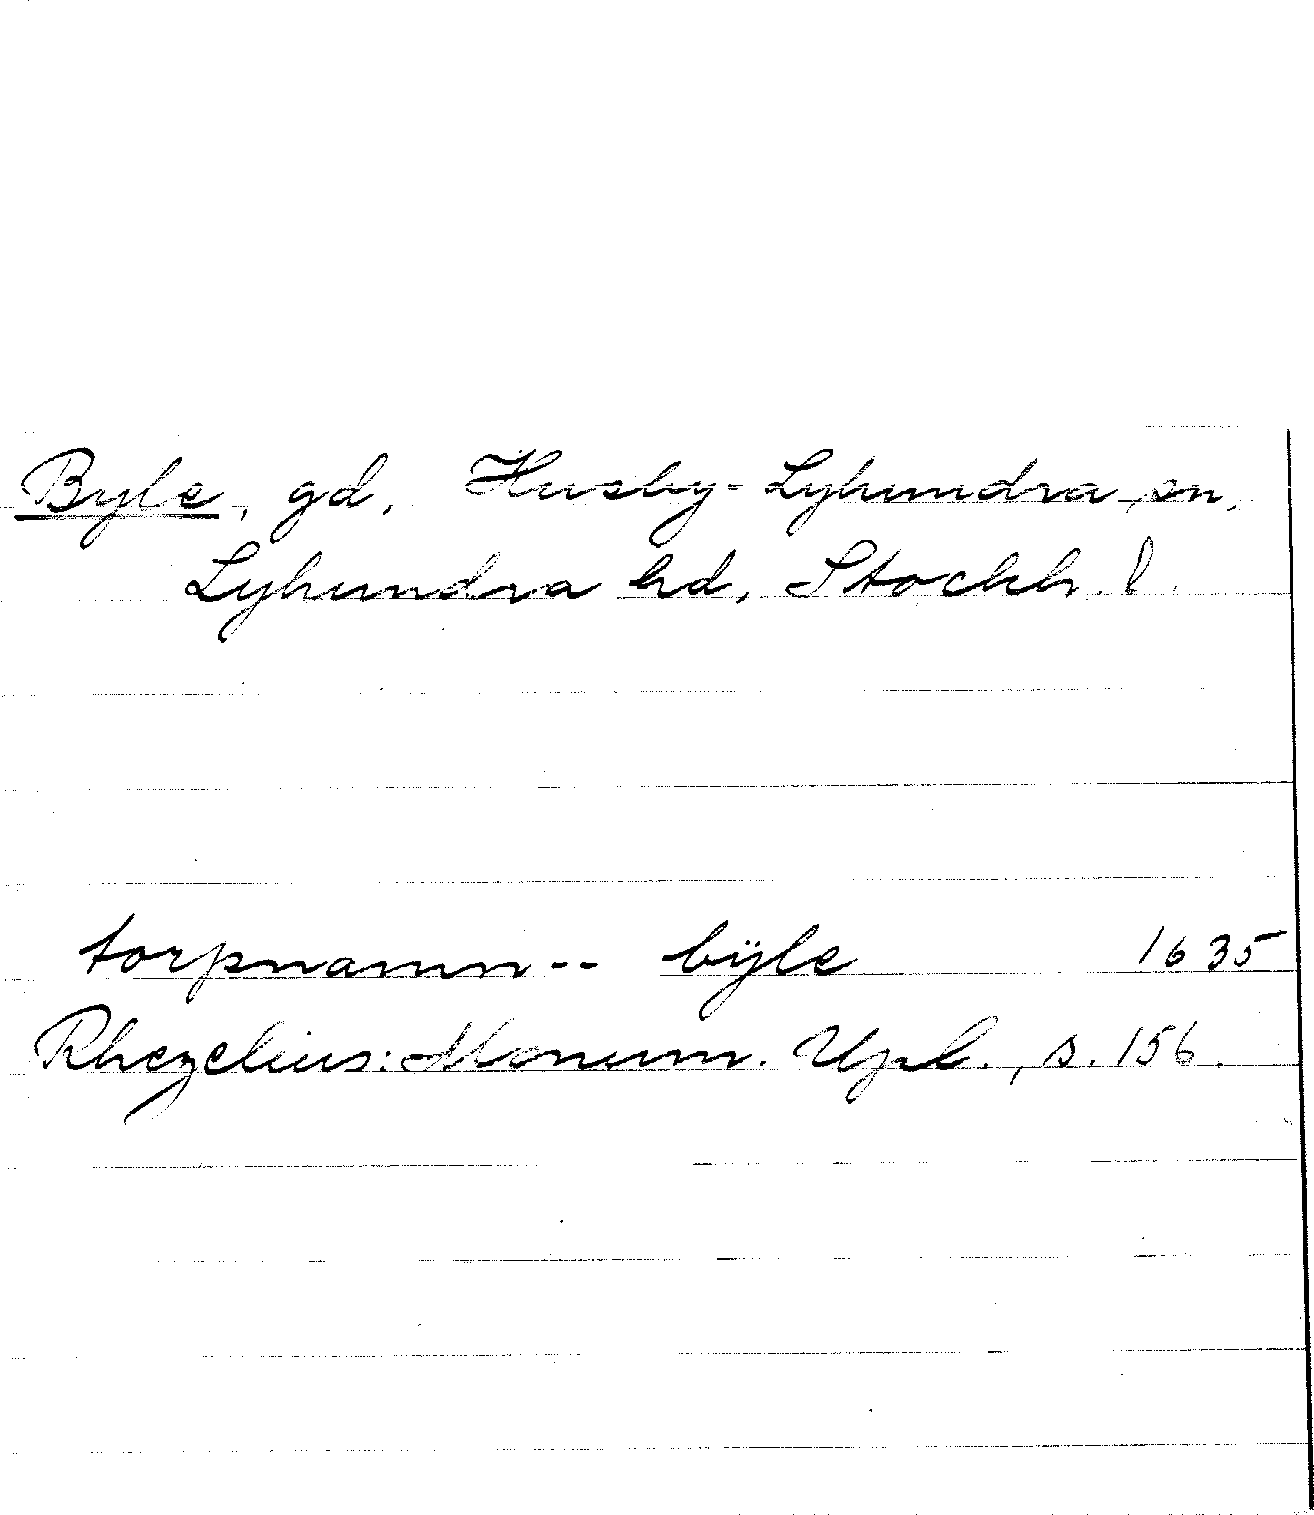 Byle, gd, Husby-Lyhundra sn,
Lyhundra hd, Stockh. l.
torpnamn-- bÿle 1635
Rhezelius: Monum. Upl., s. 156.